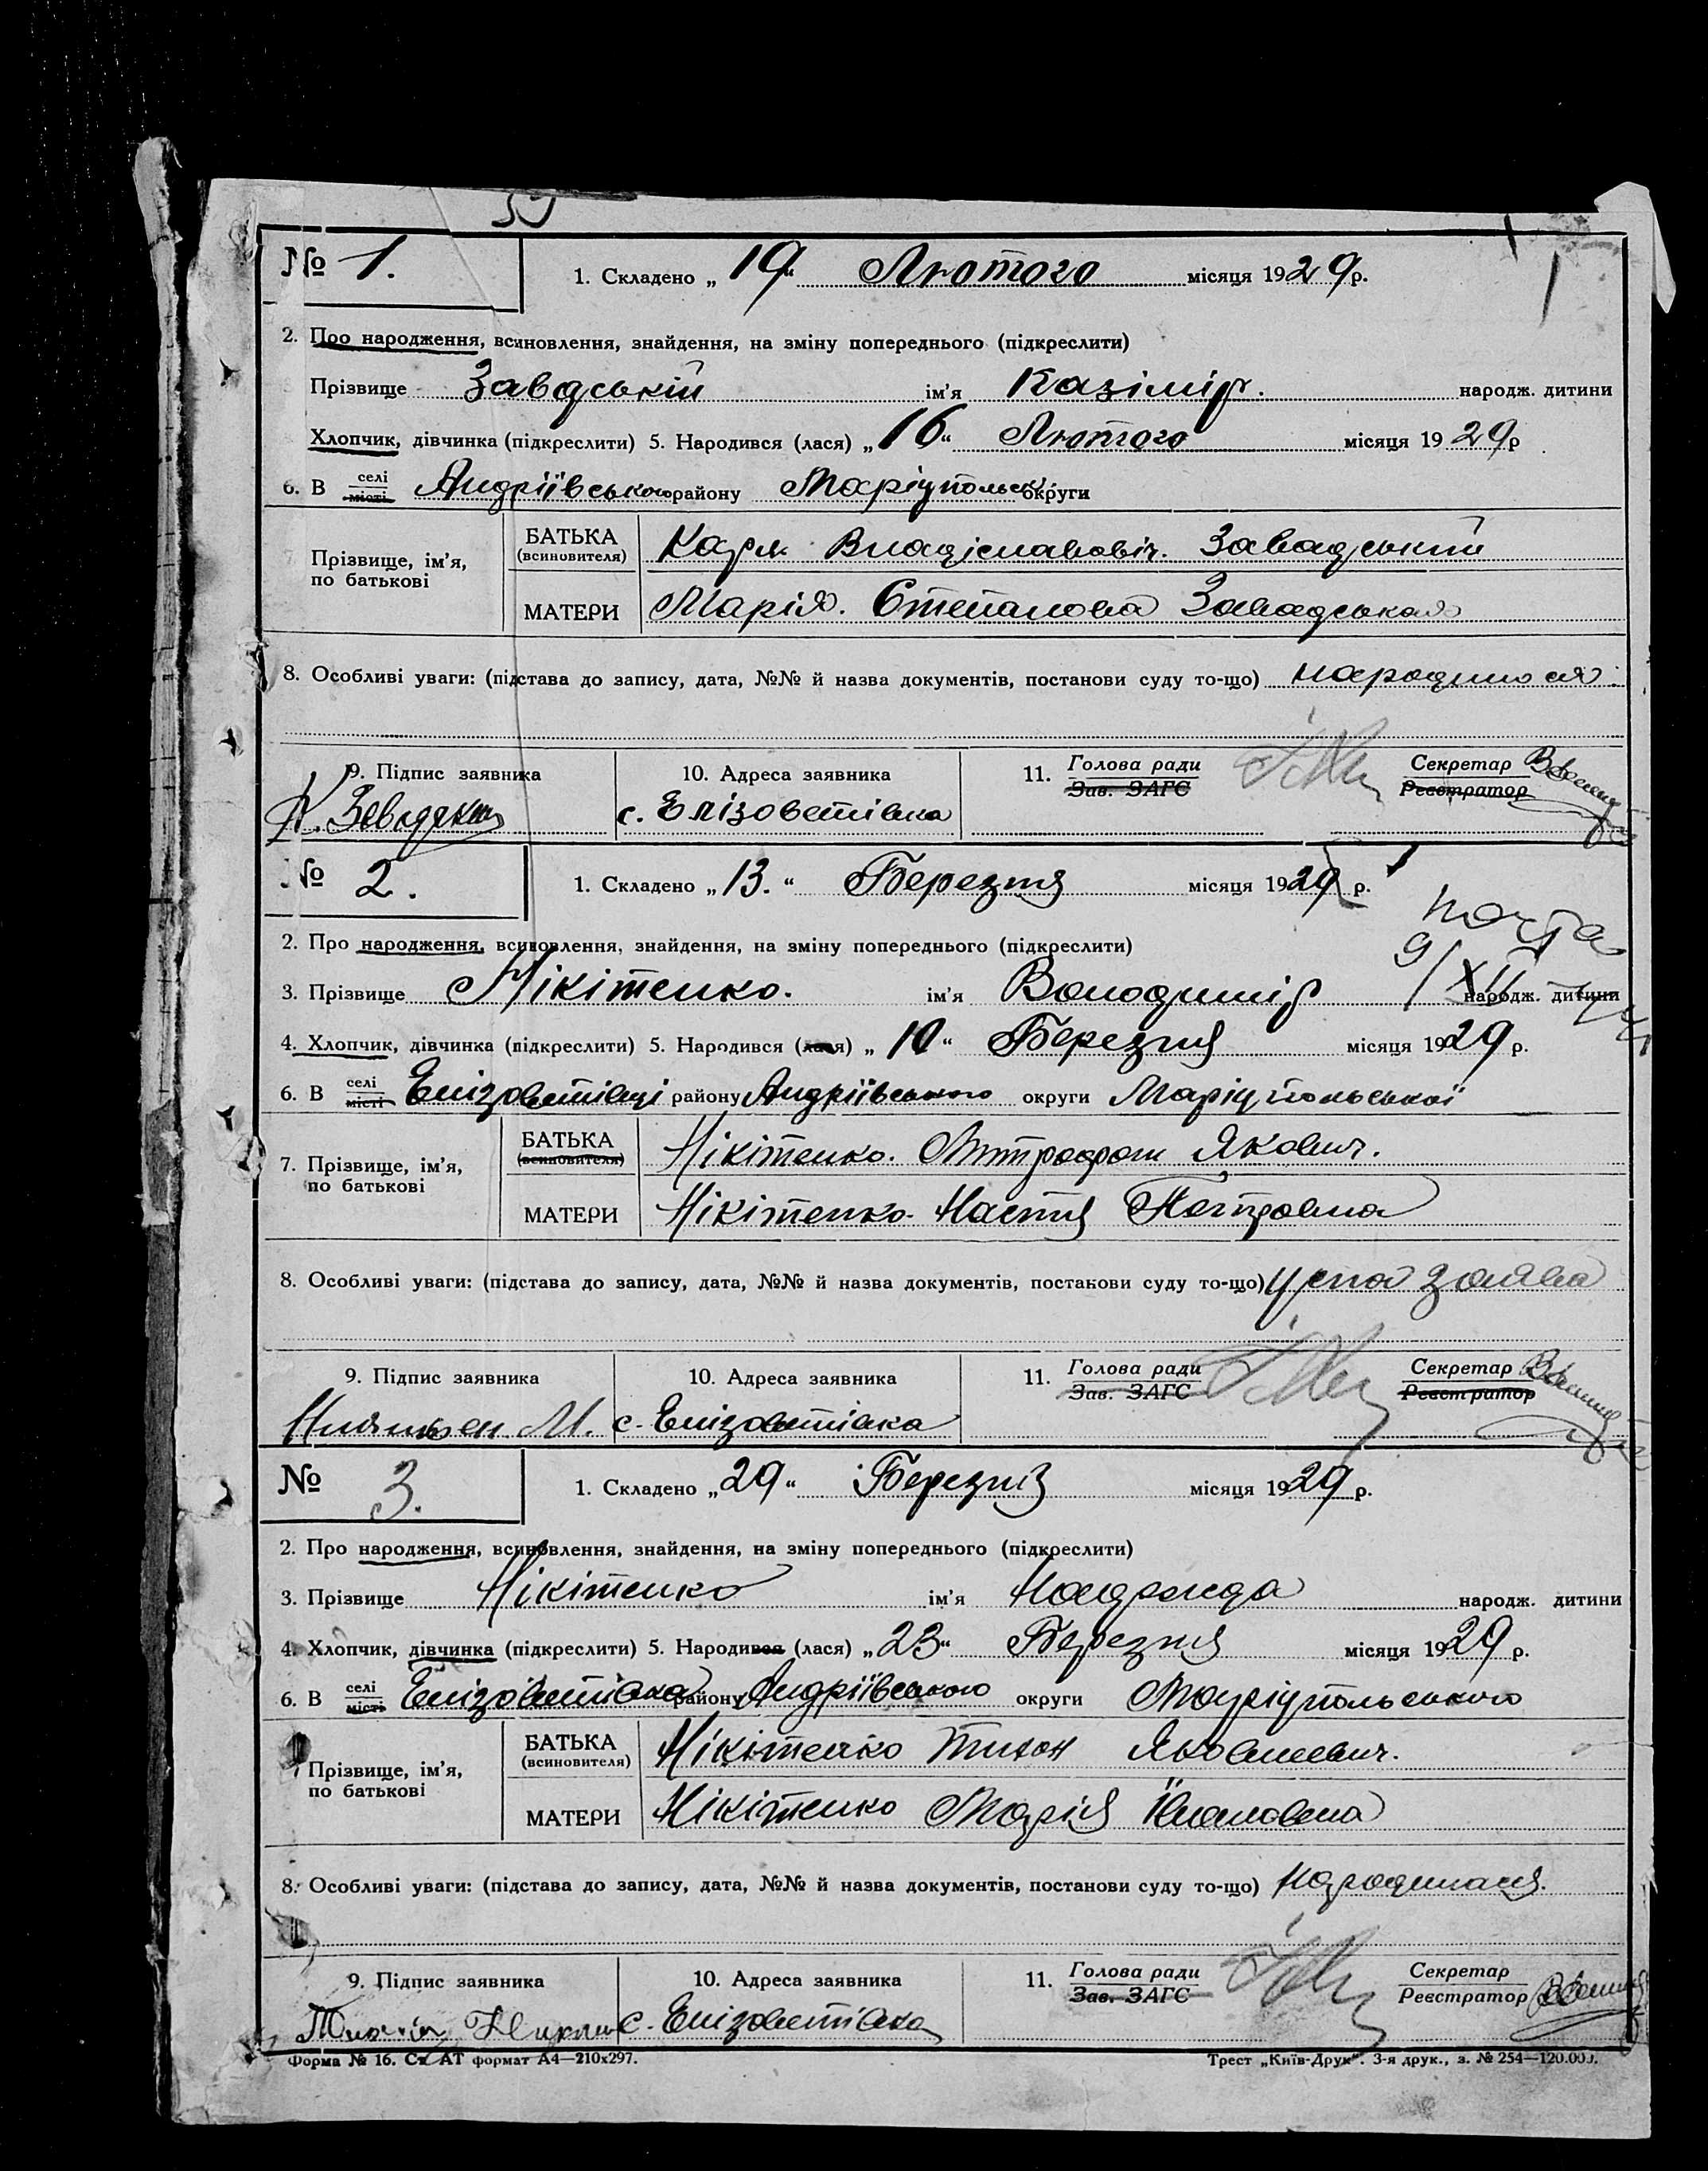 № 1. 1. Складено „19“ Лютого місяця 1929 р.
2. Про народження, всиновлення, знайдення, на зміну попереднього (підкреслити)
Прізвище Завдській ім'я Казімір. народж. дитини
Хлопчик, дівчинка (підкреслити) 5. Народився (лася) „16“ Лютого місяця 1929 р
6. В селі місті Андріївського району Маріупольськ. округи
7 Прізвище, ім'я, по батькові
БАТЬКА (всиновителя) Карл Владіславовіч. Завадський
МАТЕРИ Марія. Степанова Завадськая
8. Особливі уваги: (підстава до запису, дата, №№ й назва документів, постанови суду то-що) народився.
9. Підпис заявника 10. Адреса заявника 11. Голова ради Зав. ЗАГС Секретар Реєстратор
К. Завадский с. Елізоветівка
№ 2. 1. Складено „13.“ Березня місяця 1929 р.
2. Про народження, всиновлення, знайдення, на зміну попереднього (підкреслити)
3. Прізвище Нікітенко. ім'я Володимір народж. дитини
4. Хлопчик, дівчинка (підкреслити) 5. Народився (лася) „10“ Березня місяця 1929 р.
6. В селі місті Елізоветівці району Андріївського округи Маріупольської
7. Прізвище, ім'я, по батькові
БАТЬКА (всиновителя) Нікітенко. Митрофан Якович.
МАТЕРИ Нікітенко Настя Петровна
8. Особливі уваги: (підстава до запису, дата, №№ й назва документів, постанови суду то-що) усна заява
9. Підпис заявника 10. Адреса заявника 11. Голова ради Зав. ЗАГС Секретар Реєстратор
М. с. Елізоветівка
№ 3. 1. Складено „29“ Березня місяця 1929 р.
2. Про народження, всиновлення, знайдення, на зміну попереднього (підкреслити)
3. Прізвище Нікітенко ім'я Надежда народж. дитини
4. Хлопчик, дівчинка (підкреслити) 5. Народився (лася) „23“ Березня місяця 1929 р.
6. В селі місті Елізоветівка району Андріївського округи Маріупольського
Прізвище, ім'я, по батькові
БАТЬКА (всиновителя) Нікітенко Тихон Яковлевич.
МАТЕРИ Нікітенко Марія Івановна
8. Особливі уваги: (підстава до запису, дата, №№ й назва документів, постанови суду то-що) народилася.
9. Підпис заявника 10. Адреса заявника 11. Голова ради Зав. ЗАГС Секретар Реєстратор
с. Елізоветівка
Форма № 16. Ст. АТ формат А4—210х297. Трест „Київ-Друк“. 3-я друк., з. № 254—120.000.